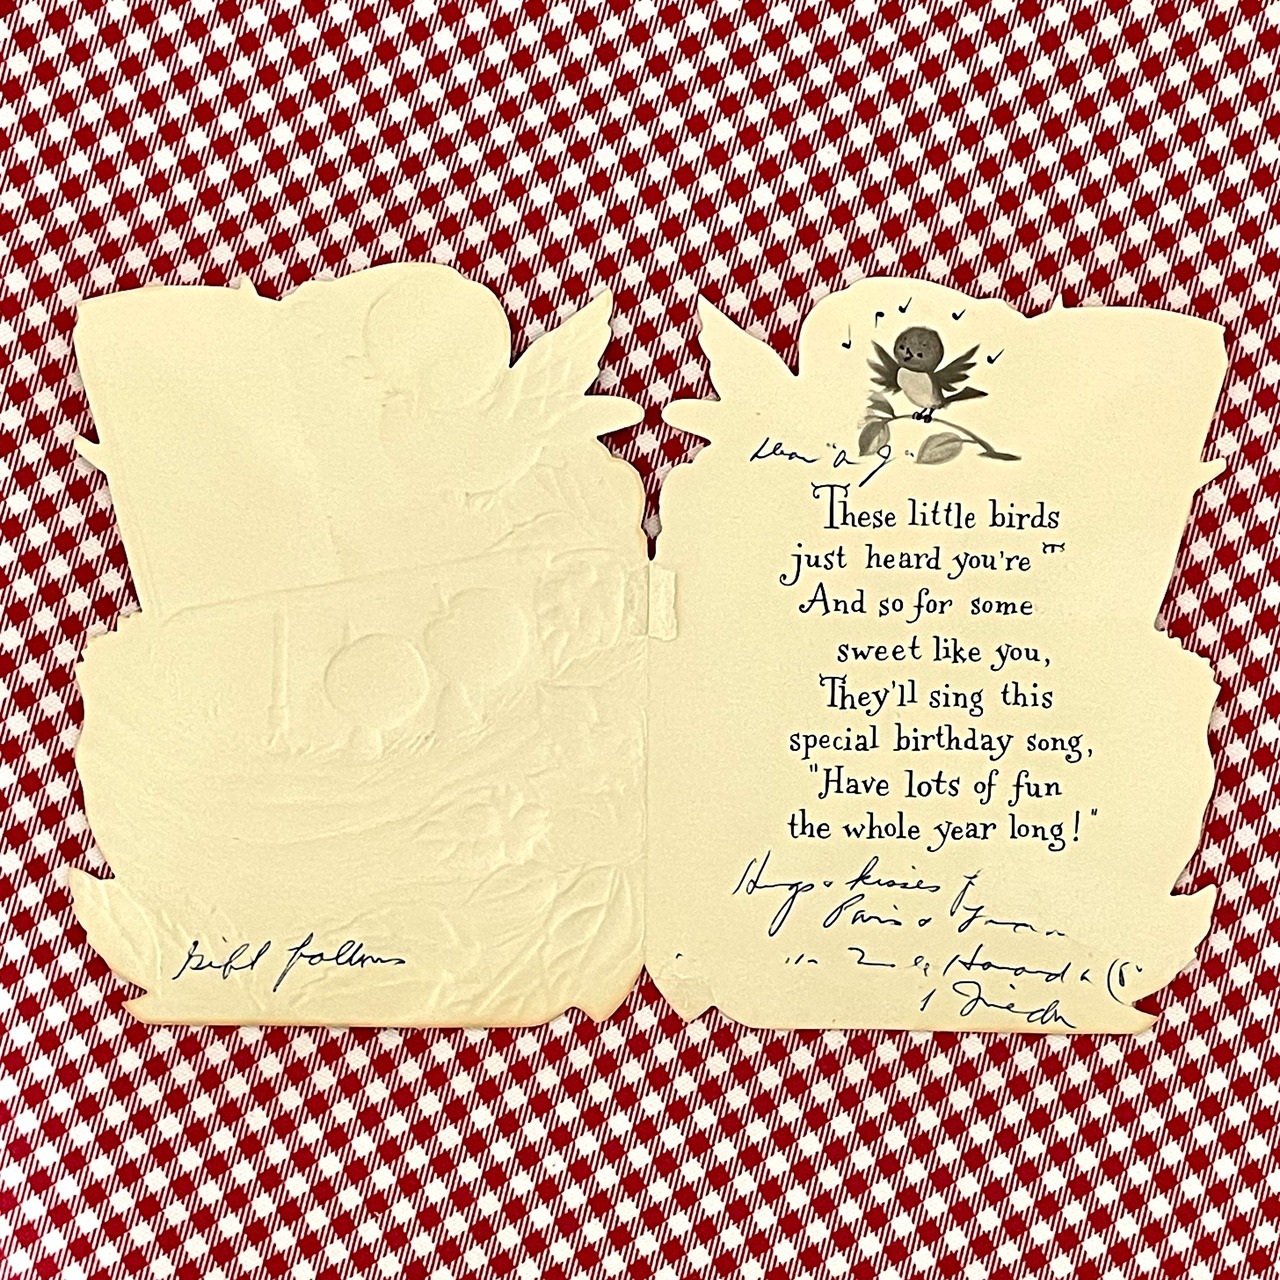 Gift follows
Dear "A J"
These little birds
just heard you're
And so for some
sweet like you,
They'll sing this
special birthday song,
"Have lots of fun
the whole year long!"
Hugs & kisses
Howard